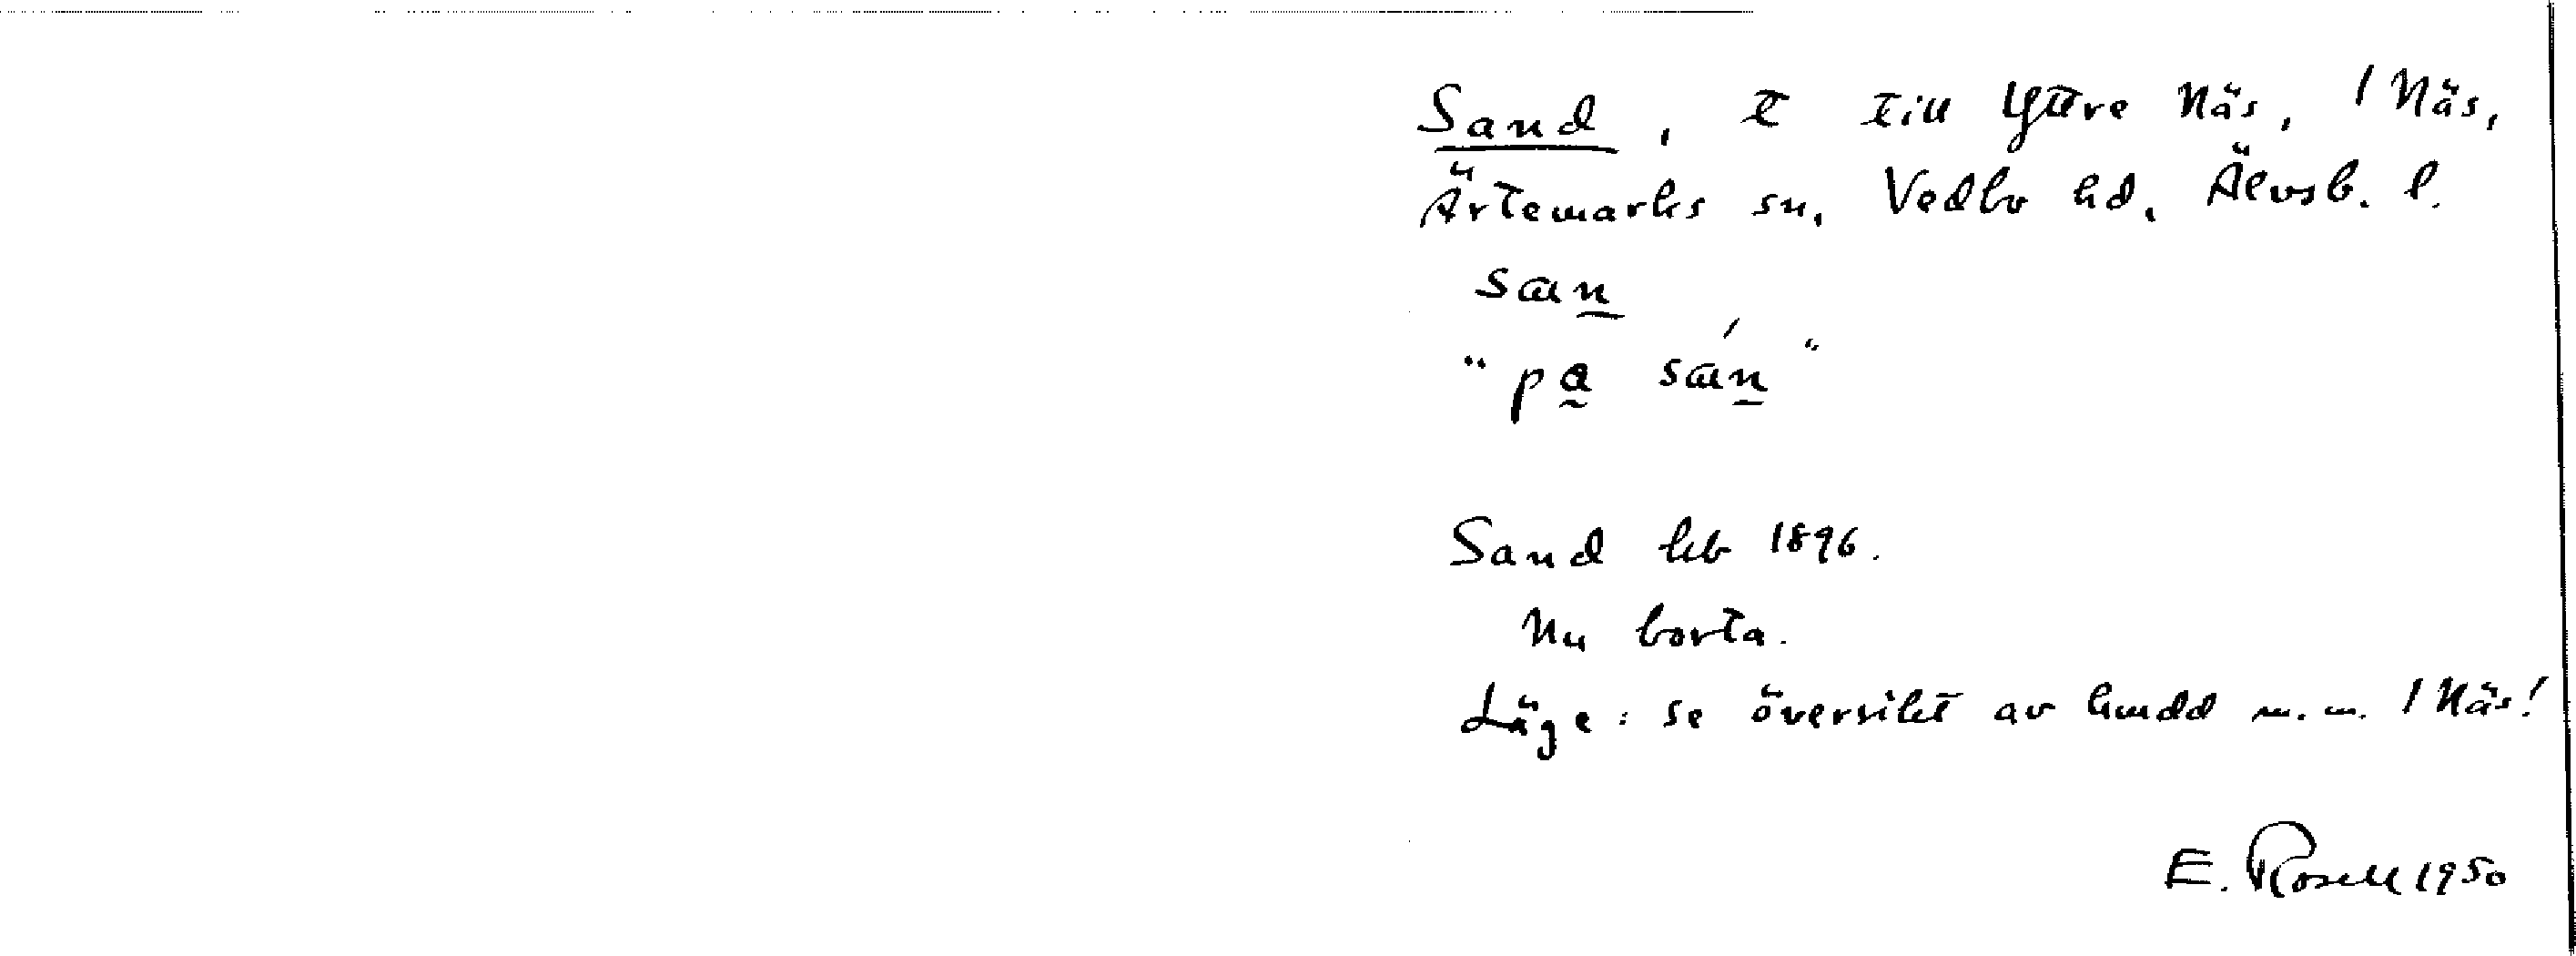 Sand, t till Yttre Näs, / Näs,
Ärtemarks sn, Vedbo hd, Älvsb. l.
san
"pa sán"
Sand kb 1896.
Nu borta.
Läge: se översikt av hmdd m.m. / Näs!
E. Rosell 1950